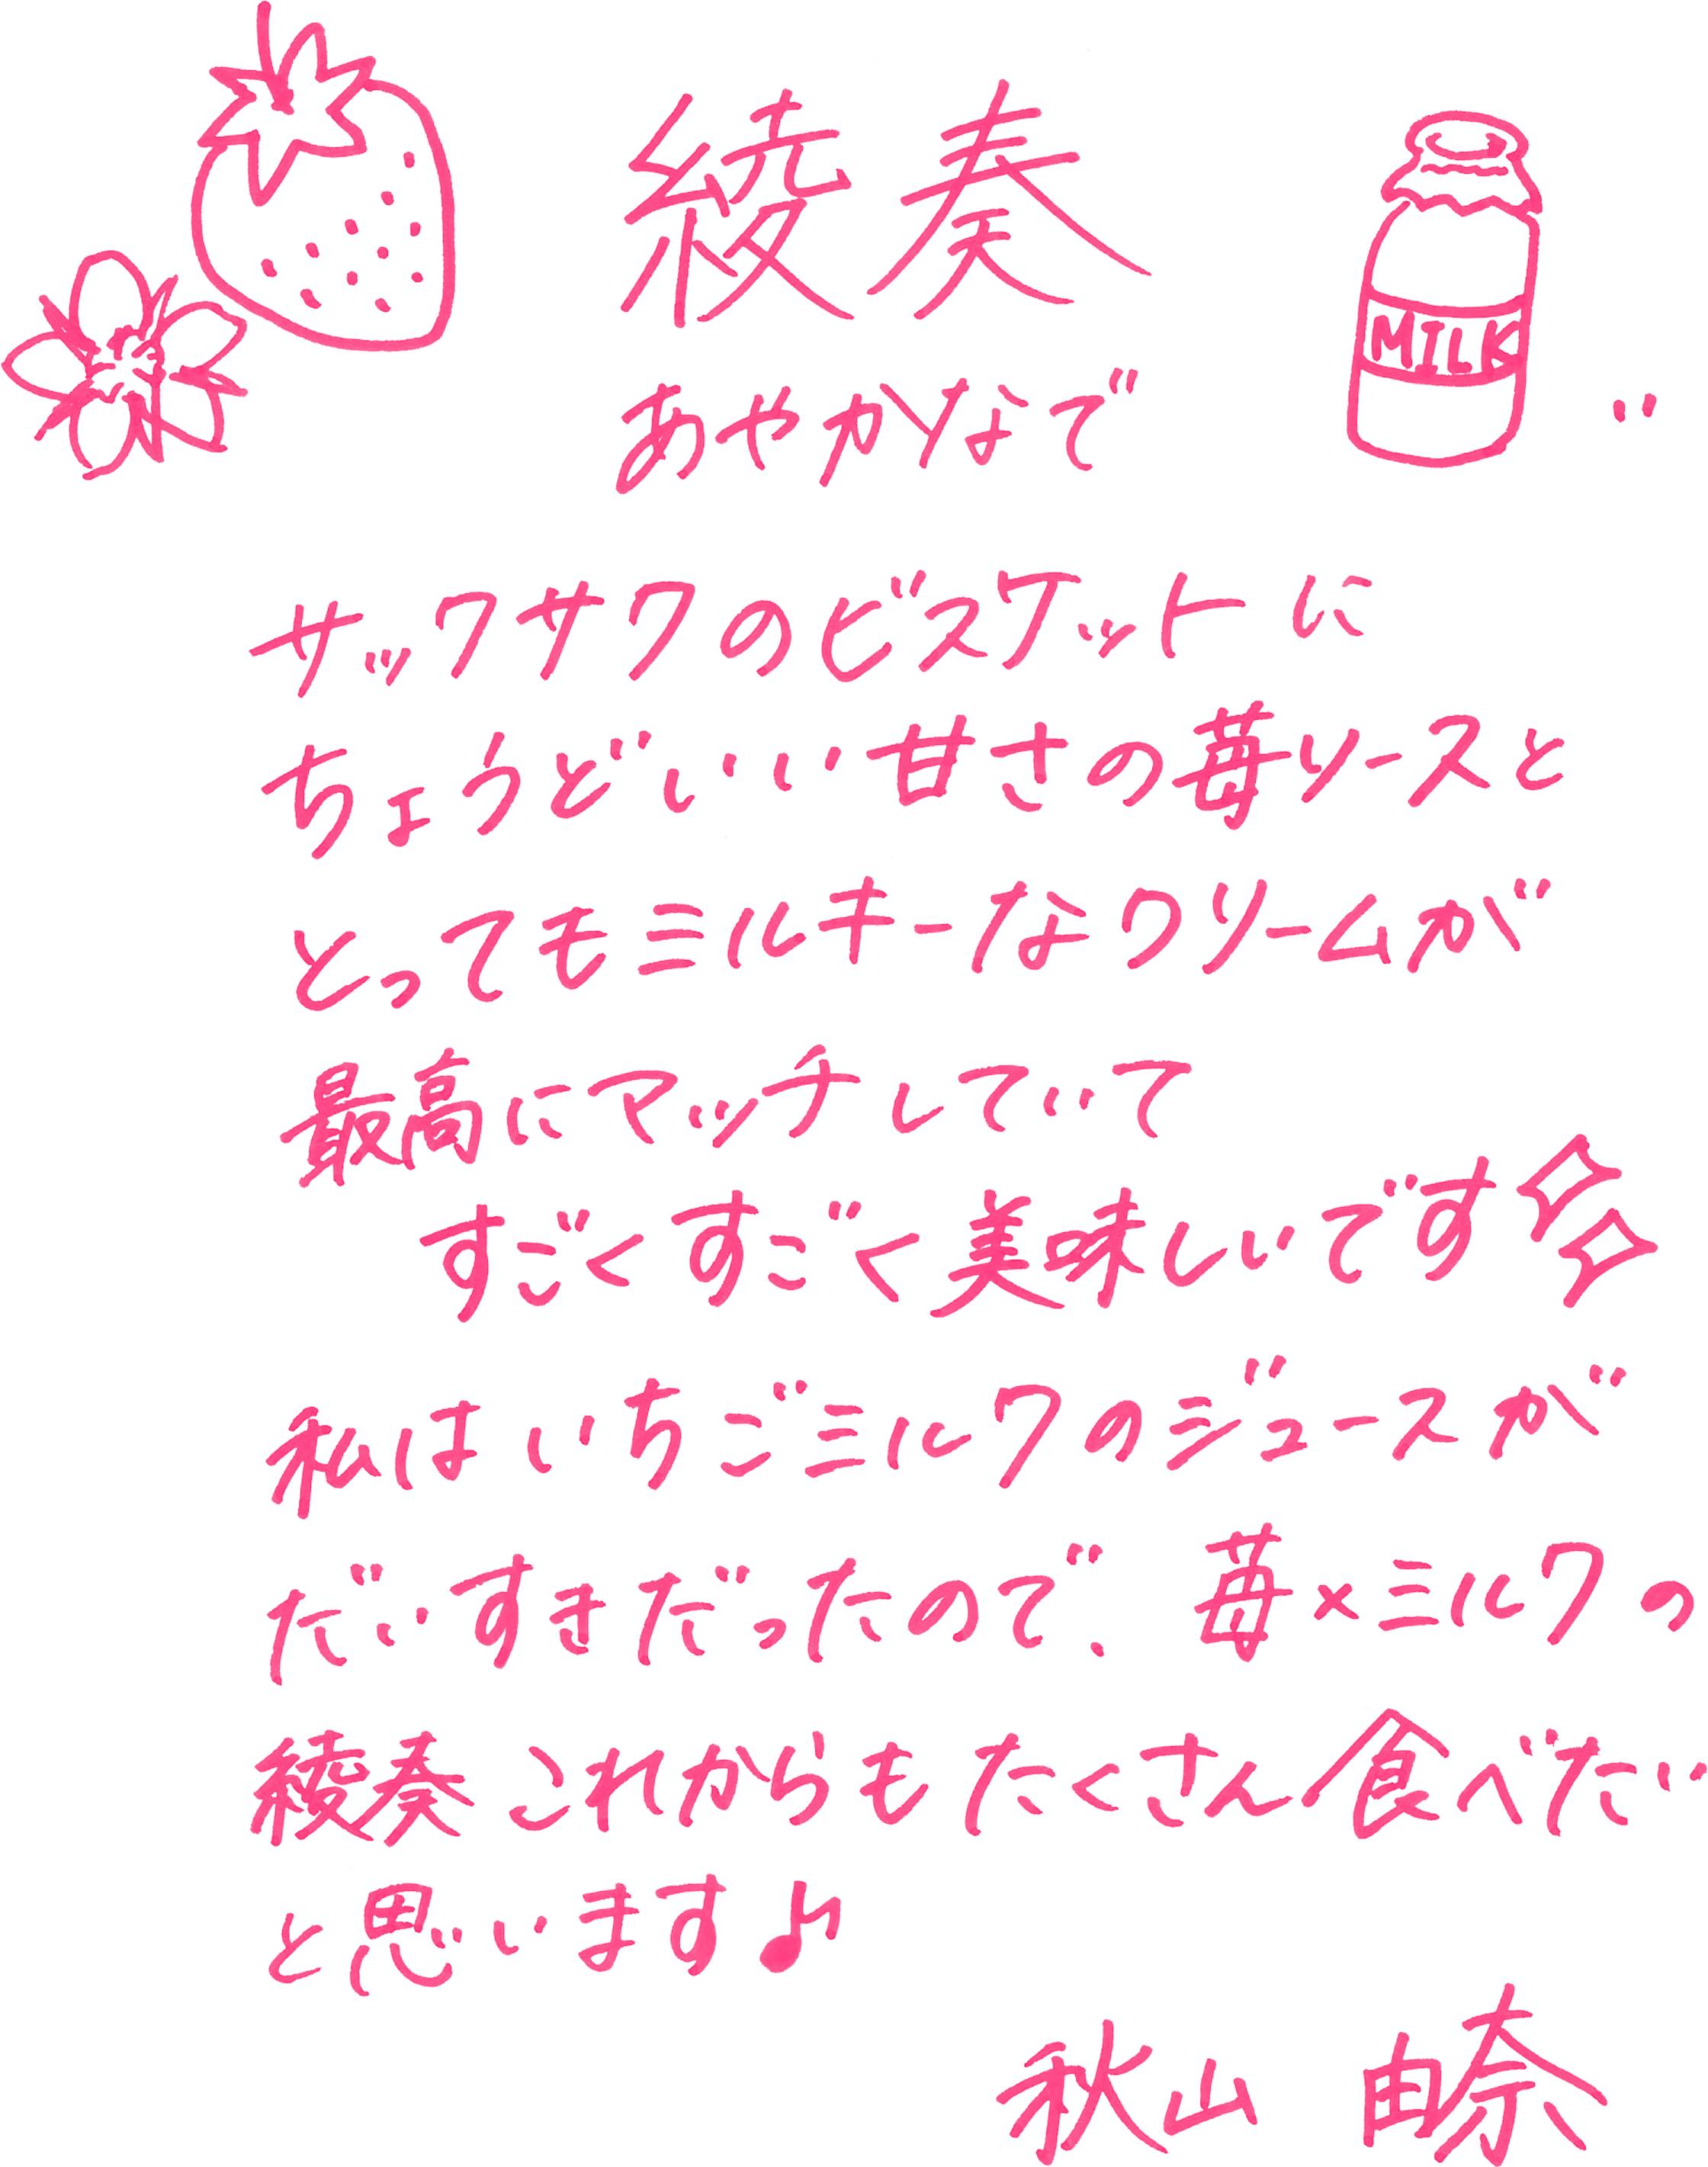 綾奏
MILK
あやかなで
サックサクのビスケットに
ちょうどいい甘さの苺ソースと
とってもミルキーなクリームが
最高にマッチしていて
すごくすごく美味しいです
私はいちごミルクのジュースが
だいすきだったので、苺×ミルクの
綾奏これからもたくさん食べたい
と思います♪
秋山 由奈